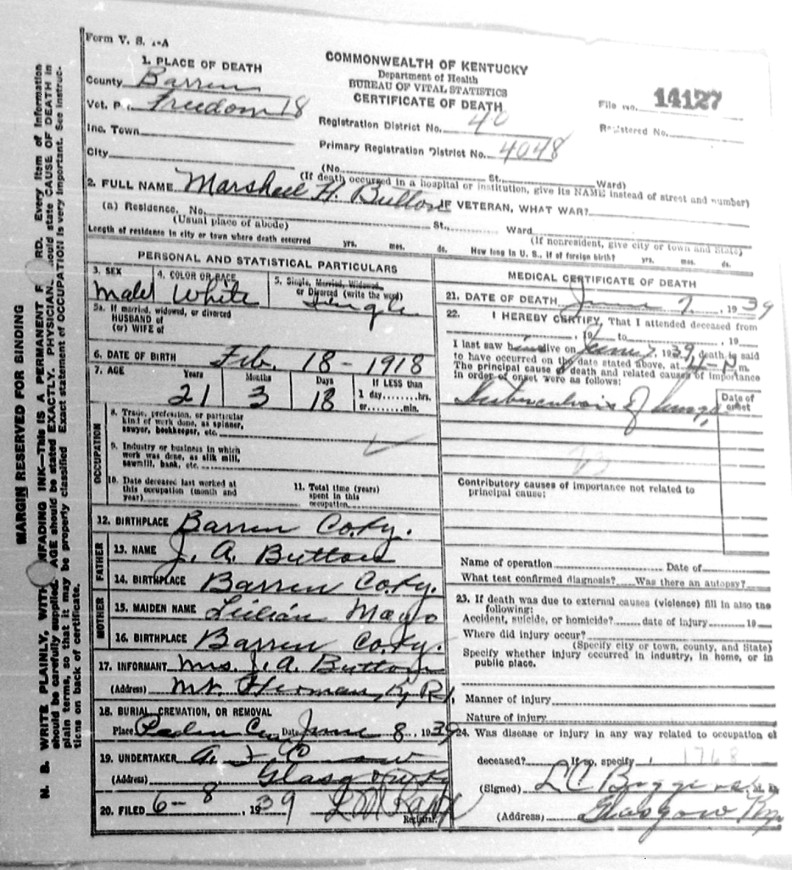 Form V. S. 1-A
COMMONWEALTH OF KENTUCKY
Department of Health
BUREAU OF VITAL STATISTICS
CERTIFICATE OF DEATH
File No. 14127
Registered No.
1. PLACE OF DEATH
County Barren
Vot. P. Freedom 18
Inc. Town
City
Registration District No. 40
Primary Registration District No. 4048
(No. St. Ward)
(If death occurred in a hospital or institution, give its NAME instead of street and number)
2. FULL NAME Marshall H. Button IF VETERAN, WHAT WAR?
(a) Residence, No. St., Ward
(Usual place of abode) (If nonresident, give city or town and State)
Length of residence in city or town where death occurred yrs. mos. ds. How long in U. S., if of foreign birth? yrs. mos. ds.
PERSONAL AND STATISTICAL PARTICULARS
3. SEX 4. COLOR OR RACE 5. Single, Married, Widowed,
or Divorced (write the word)
Male White Single
5a. If married, widowed, or divorced
HUSBAND of
(or) WIFE of
6. DATE OF BIRTH Feb. 18-1918
7. AGE Years Months Days If LESS than
1 day hrs.
or min.
21 3 18
OCCUPATION
8. Trade, profession, or particular
kind of work done, as spinner,
sawyer, bookkeeper, etc.
9. Industry or business in which
work was done, as silk mill,
sawmill, bank, etc.
10. Date deceased last worked at
this occupation (month and
year)
11. Total time (years)
spent in this
occupation
12. BIRTHPLACE Barren Co Ky.
FATHER
13. NAME J. A. Button
14. BIRTHPLACE Barren Co Ky.
MOTHER
15. MAIDEN NAME Lulian Mayo
16. BIRTHPLACE Barren Co Ky.
17. INFORMANT Mrs. J. A. Button
(Address) Mt. Herman, Ky R1,
18. BURIAL, CREMATION, OR REMOVAL
Place Date June 8, 1939
19. UNDERTAKER A. F. Crow
(Address) Glasgow Ky
20. FILED 6-8, 1939
Registrar.
MEDICAL CERTIFICATE OF DEATH
21. DATE OF DEATH June 7, 1939
22. I HEREBY CERTIFY, That I attended deceased from
, 19 to , 19
I last saw him alive on June 7, 1939, death is said
to have occurred on the date stated above, at 4-P m.
The principal cause of death and related causes of importance
in order of onset were as follows:
Date of
onset
Tuberculosis of lungs,
Contributory causes of importance not related to
principal cause:
Name of operation Date of
What test confirmed diagnosis? Was there an autopsy?
23. If death was due to external causes (violence) fill in also the
following:
Accident, suicide, or homicide? date of injury 19
Where did injury occur?
(Specify city or town, county, and State)
Specify whether injury occurred in industry, in home, or in
public place.
Manner of injury
Nature of injury
24. Was disease or injury in any way related to occupation of
deceased? If so, specify 1768
(Signed) L C M. D.
(Address) Glasgow Ky
MARGIN RESERVED FOR BINDING
N. B. WRITE PLAINLY, WITH UNFADING INK—THIS IS A PERMANENT RECORD. Every item of information
should be carefully supplied. AGE should be stated EXACTLY. PHYSICIANS should state CAUSE OF DEATH in
plain terms, so that it may be properly classified. Exact statement of OCCUPATION is very important. See instruc-
tions on back of certificate.